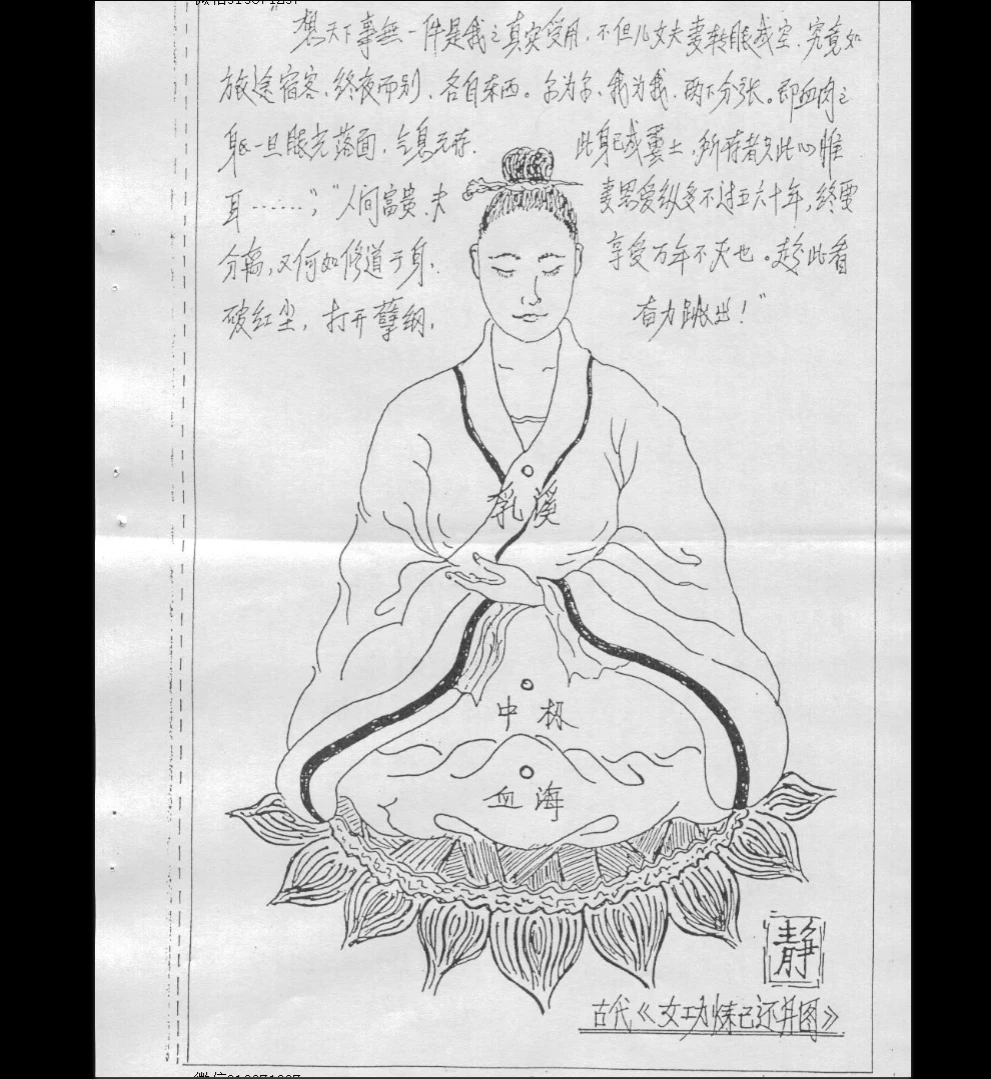 "想天下事無一件是我之真实受用，不但儿女夫妻转眼成空，究竟如
旅途宿客，终夜而别，各自东西。尔为尔，我为我，两下分张。即血肉之
躯一旦眼光落面，气息无存，此身已成虀土，所存者只此心性
耳……"；"人间富贵，夫妻恩爱纵多不过五六十年，终要
分离，又何如修道于身，享受万年不灭也。趁此看
破红尘，打开孽网，奋力跳出！"
乳溪
中极
血海
静
古代《女功炼己还丹图》